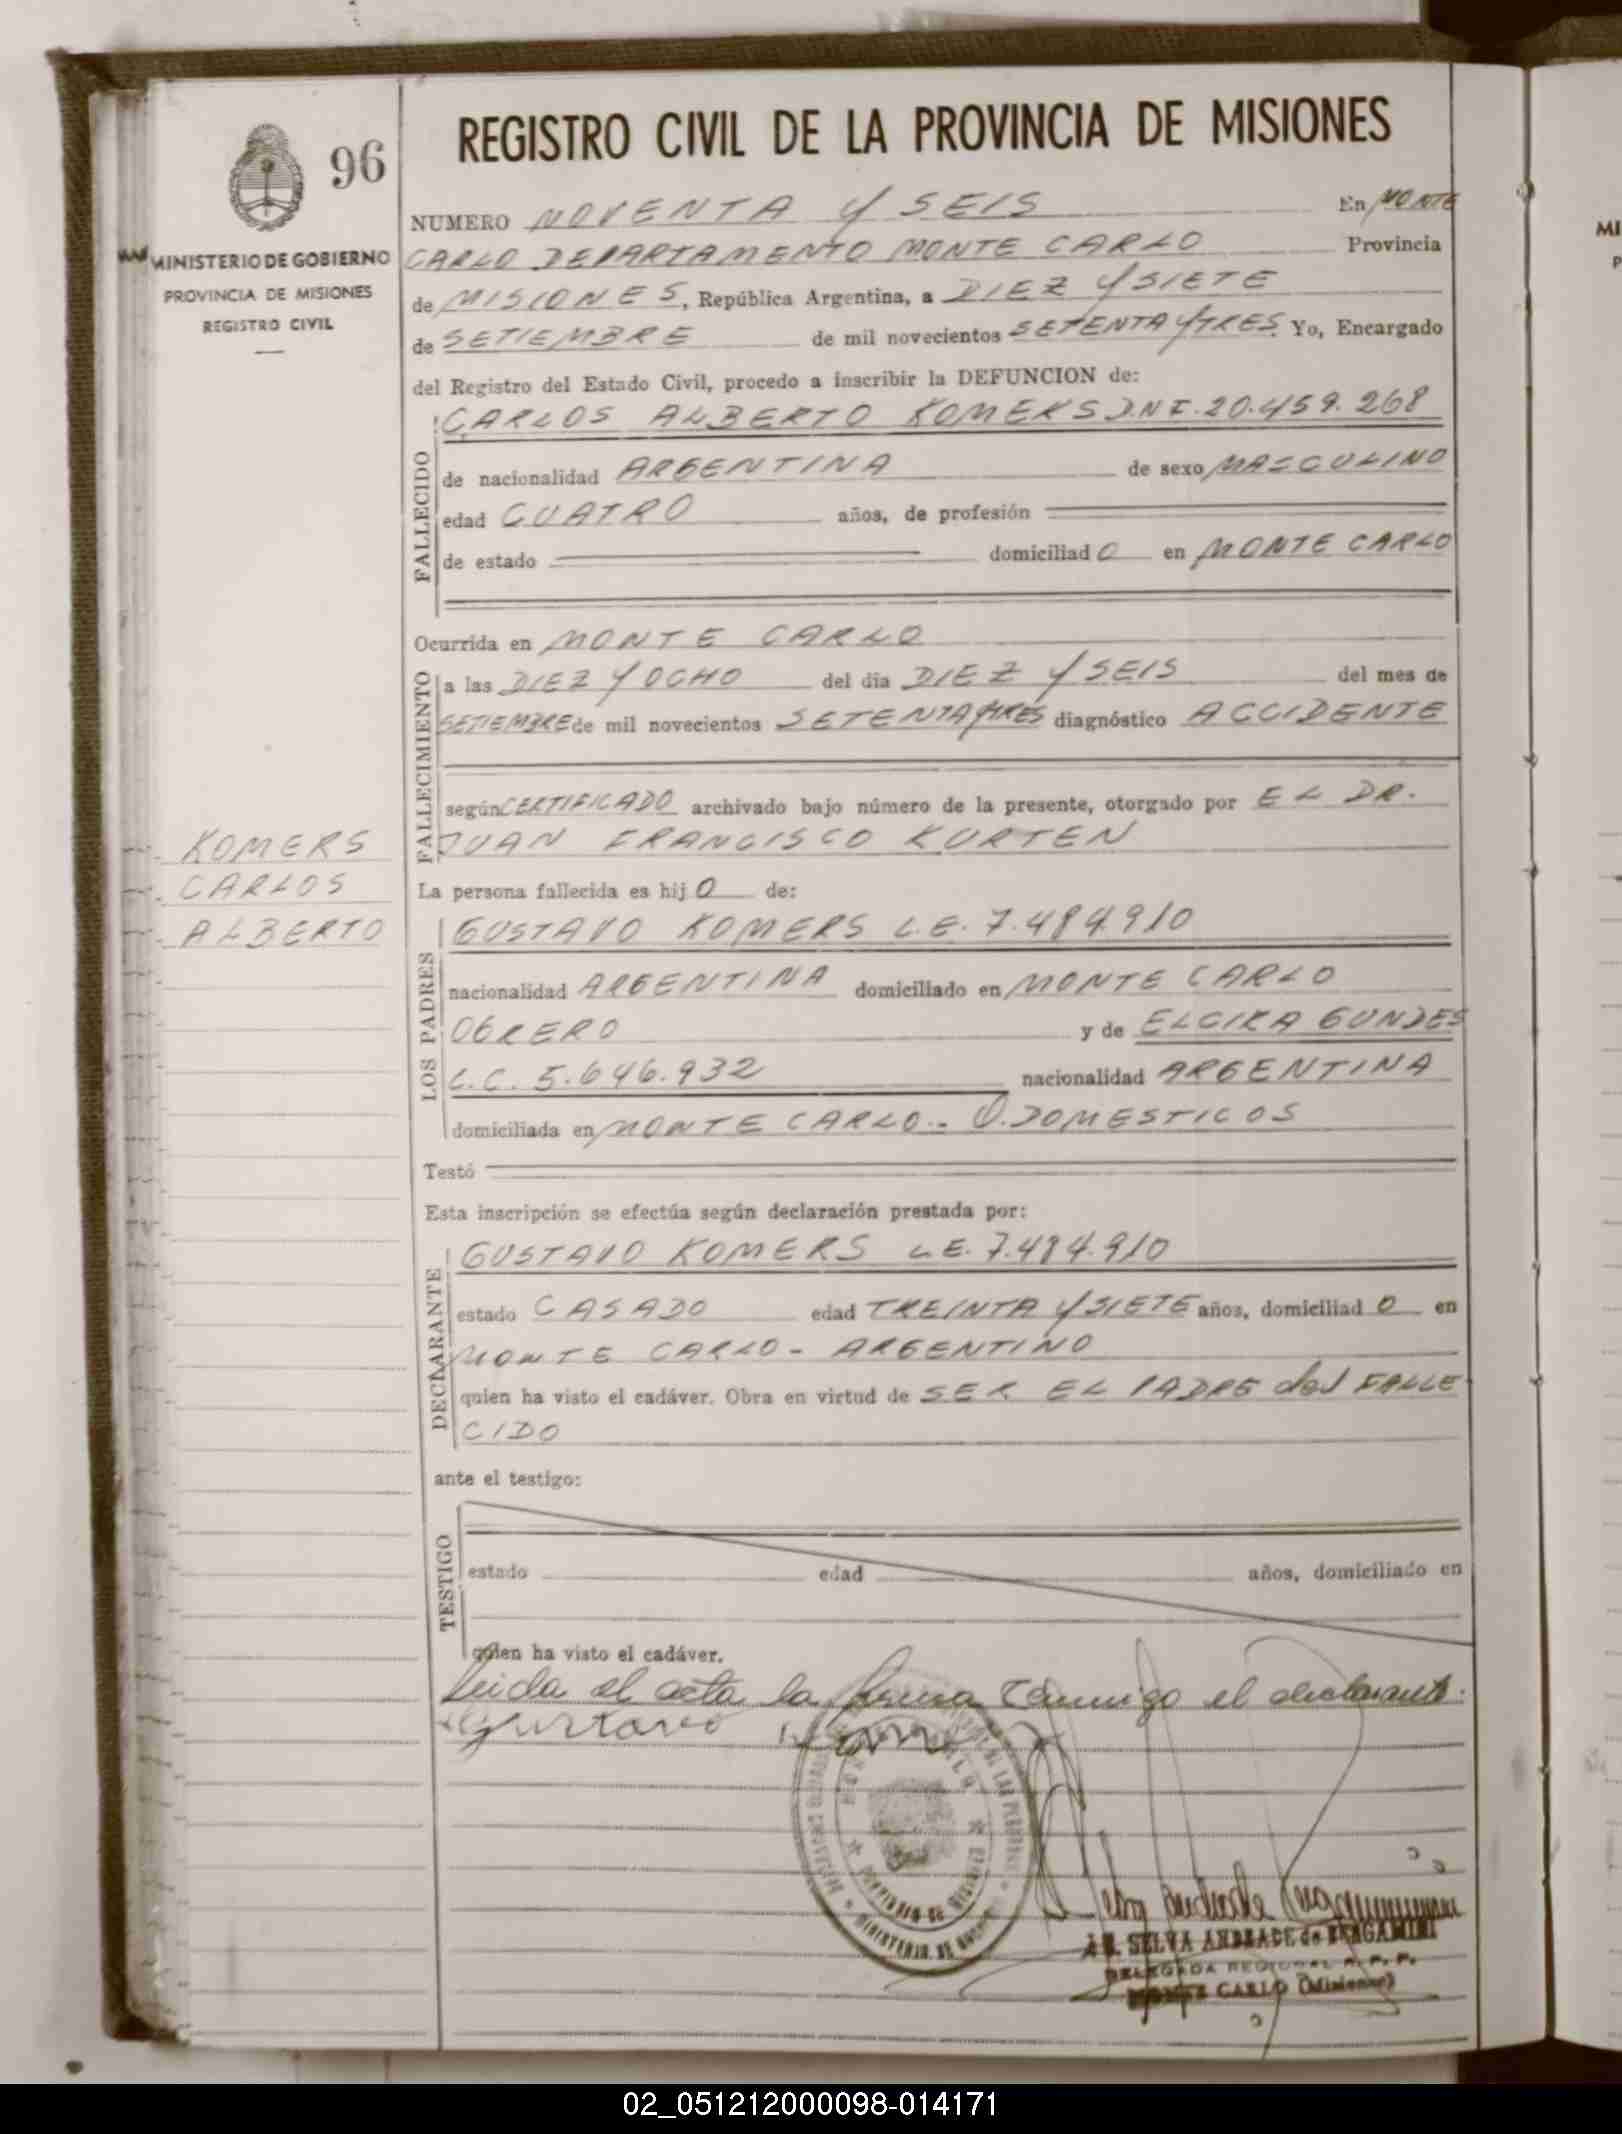 96
MINISTERIO DE GOBIERNO
PROVINCIA DE MISIONES
REGISTRO CIVIL
KOMERS
CARLOS
ALBERTO
REGISTRO CIVIL DE LA PROVINCIA DE MISIONES
NUMERO NOVENTA Y SEIS En MONTE
CARLO DEPARTAMENTO MONTE CARLO Provincia
de MISIONES, República Argentina, a DIEZ Y SIETE
de SETIEMBRE de mil novecientos SETENTA Y TRES Yo, Encargado
del Registro del Estado Civil, procedo a inscribir la DEFUNCION de:
FALLECIDO
CARLOS ALBERTO KOMERS D.N.I. 20.459.268
de nacionalidad ARGENTINA de sexo MASCULINO
edad CUATRO años, de profesión
de estado domiciliad O en MONTE CARLO
Ocurrida en MONTE CARLO
FALLECIMIENTO
a las DIEZ Y OCHO del día DIEZ Y SEIS del mes de
SETIEMBRE de mil novecientos SETENTA Y TRES diagnóstico ACCIDENTE
según CERTIFICADO archivado bajo número de la presente, otorgado por EL DR.
JUAN FRANCISCO KURTEN
La persona fallecida es hij O de:
LOS PADRES
GUSTAVO KOMERS L.E. 7.484.910
nacionalidad ARGENTINA domiciliado en MONTE CARLO
OBRERO y de ELCIRA GUNDES
L.C. 5.646.932 nacionalidad ARGENTINA
domiciliada en MONTE CARLO.- Q.DOMESTICOS
Testó
Esta inscripción se efectúa según declaración prestada por:
DECLARANTE
GUSTAVO KOMERS L.E. 7.484.910
estado CASADO edad TREINTA Y SIETE años, domiciliad O en
MONTE CARLO - ARGENTINO
quien ha visto el cadáver. Obra en virtud de SER EL PADRE del FALLE
CIDO
ante el testigo:
TESTIGO
estado edad años, domiciliado en
quien ha visto el cadáver.
Leida el acta la firma conmigo el declarante.
Gustavo
SELVA ANDRADE de BERGAMINI
DELEGADA REGIONAL R. P. P.
MONTE CARLO (Misiones)
02_051212000098-014171